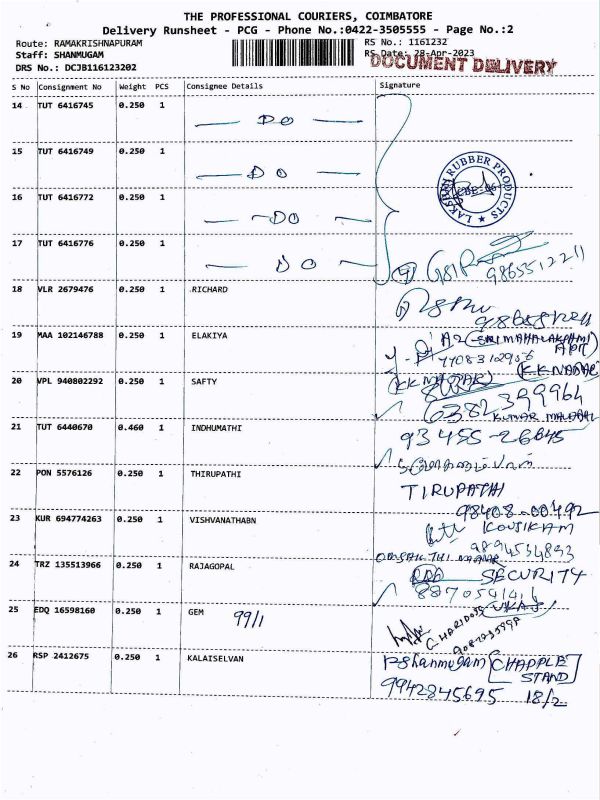 THE PROFESSIONAL COURIERS, COIMBATORE
Delivery Runsheet - PCG - Phone No.:0422-3505555 - Page No.:2
Route: RAMAKRISHNAPURAM
RS No.: 1161232
Staff: SHANMUGAM
RS Date: 28-Apr-2023
DRS No.: DCJB116123202
DOCUMENT DELIVERY
S No Consignment No Weight PCS Consignee Details Signature
14 TUT 6416745 0.250 1 — DO —
15 TUT 6416749 0.250 1 — DO —
LAKSHMI RUBBER PRODUCTS
CBE-06
16 TUT 6416772 0.250 1 — DO —
17 TUT 6416776 0.250 1 — DO —
9865512211
18 VLR 2679476 0.250 1 RICHARD
19 MAA 102146788 0.250 1 ELAKIYA
A2 (SRI MAHALAKSHMI
APT)
20 VPL 940802292 0.250 1 SAFTY
(KK NAGAR) (KK NAGAR)
6382399964
21 TUT 6440670 0.460 1 INDHUMATHI
93455-26645
22 PON 5576126 0.250 1 THIRUPATHI
TIRUPATHI
98408-00492
23 KUR 694774263 0.250 1 VISHVANATHABN
KOUSIKAM
9894534893
24 TRZ 135513966 0.250 1 RAJAGOPAL
SECURITY
8870541416
25 EDQ 16598160 0.250 1 GEM 99/1
26 RSP 2412675 0.250 1 KALAISELVAN
P. Shanmugam [CHAPPLE
STAND]
9942845695 18/2